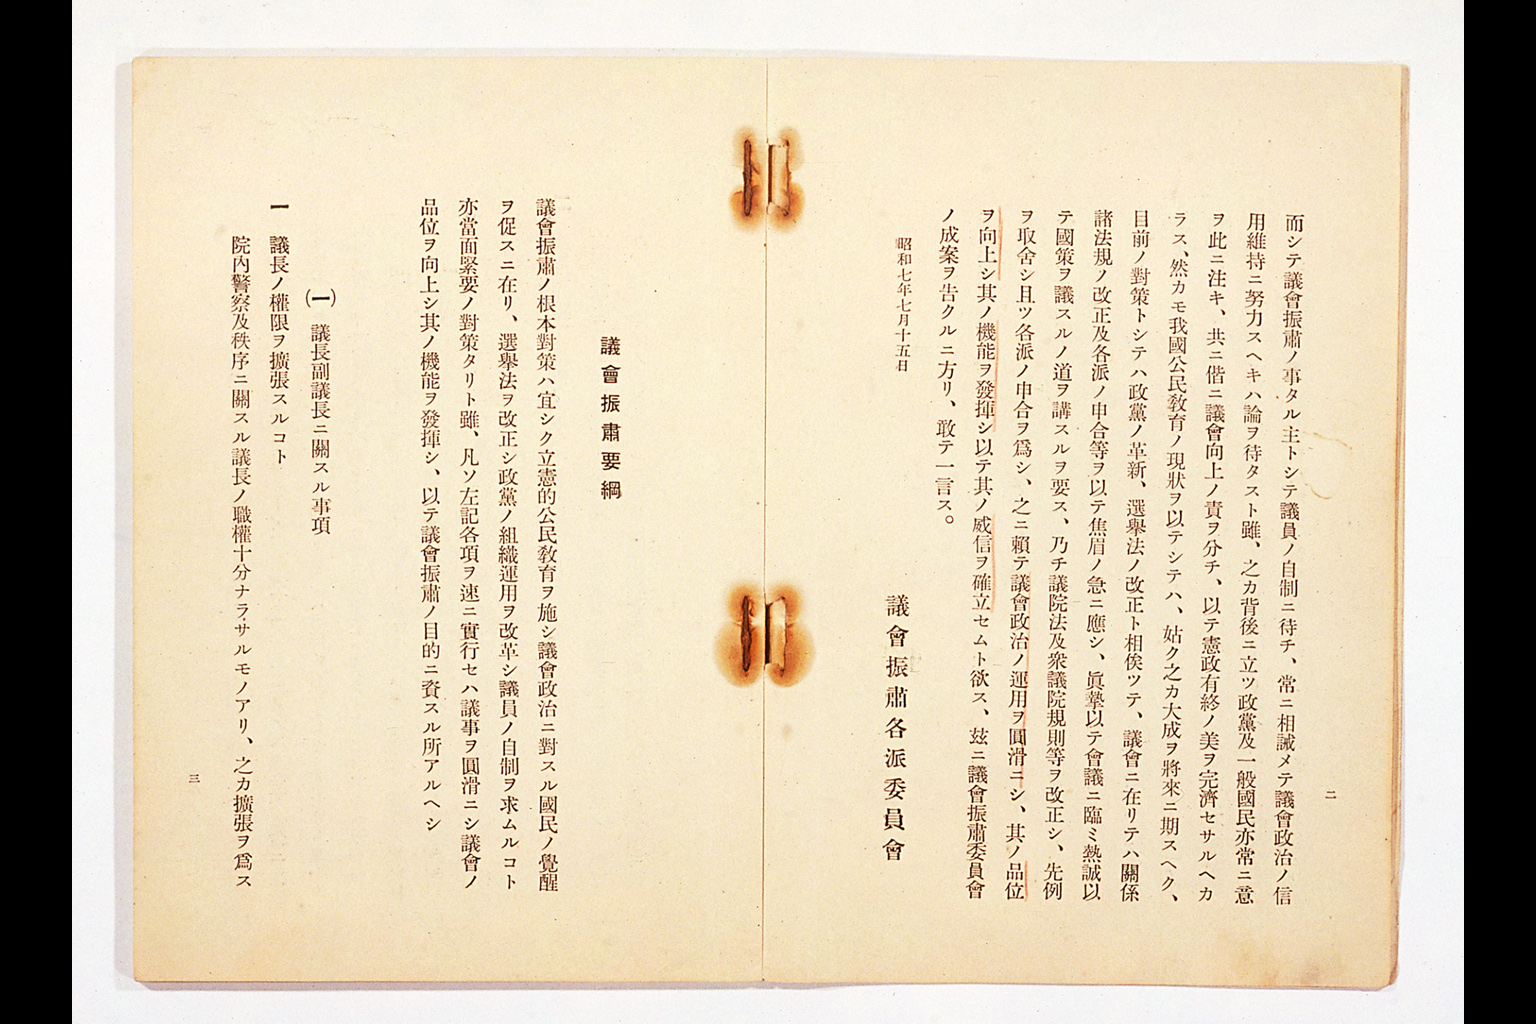 二
而シテ議會振肅ノ事タル主トシテ議員ノ自制ニ待チ、常ニ相誡メテ議會政治ノ信
用維持ニ努力スヘキハ論ヲ待タスト雖、之カ背後ニ立ツ政黨及一般國民亦常ニ意
ヲ此ニ注キ、共ニ偕ニ議會向上ノ責ヲ分チ、以テ憲政有終ノ美ヲ完濟セサルヘカ
ラス、然カモ我國公民敎育ノ現狀ヲ以テシテハ、姑ク之カ大成ヲ將來ニ期スヘク、
目前ノ對策トシテハ政黨ノ革新、選擧法ノ改正ト相俟ツテ、議會ニ在リテハ關係
諸法規ノ改正及各派ノ申合等ヲ以テ焦眉ノ急ニ應シ、眞摯以テ會議ニ臨ミ熱誠以
テ國策ヲ議スルノ道ヲ講スルヲ要ス、乃チ議院法及衆議院規則等ヲ改正シ、先例
ヲ取舍シ且ツ各派ノ申合ヲ爲シ、之ニ賴テ議會政治ノ運用ヲ圓滑ニシ、其ノ品位
ヲ向上シ其ノ機能ヲ發揮シ以テ其ノ威信ヲ確立セムト欲ス、玆ニ議會振肅委員會
ノ成案ヲ告クルニ方リ、敢テ一言ス。
昭和七年七月十五日
議會振肅各派委員會
議會振肅要綱
議會振肅ノ根本對策ハ宜シク立憲的公民敎育ヲ施シ議會政治ニ對スル國民ノ覺醒
ヲ促スニ在リ、選擧法ヲ改正シ政黨ノ組織運用ヲ改革シ議員ノ自制ヲ求ムルコト
亦當面緊要ノ對策タリト雖、凡ソ左記各項ヲ速ニ實行セハ議事ヲ圓滑ニシ議會ノ
品位ヲ向上シ其ノ機能ヲ發揮シ、以テ議會振肅ノ目的ニ資スル所アルヘシ
(一) 議長副議長ニ關スル事項
一 議長ノ權限ヲ擴張スルコト
院內警察及秩序ニ關スル議長ノ職權十分ナラサルモノアリ、之カ擴張ヲ爲ス
三